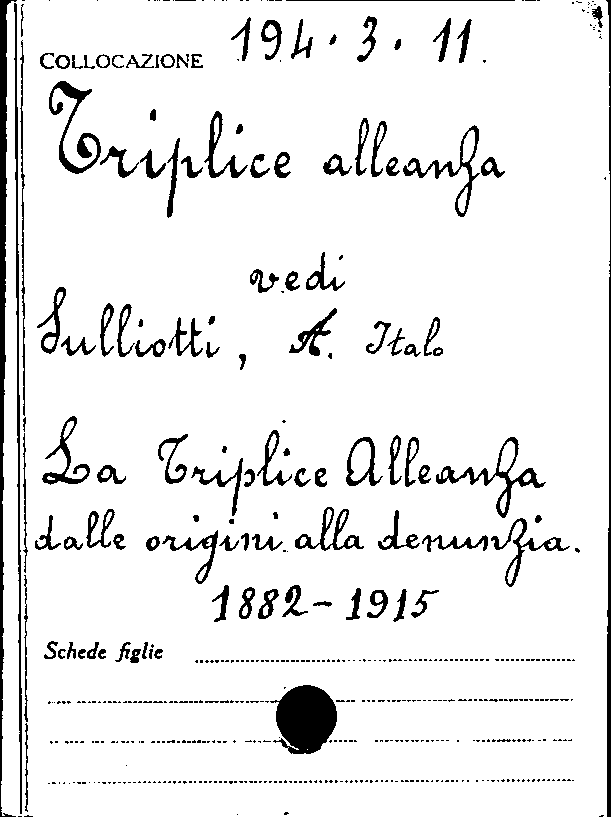 COLLOCAZIONE 194.3.11.
Triplice alleanza
vedi
Sulliotti, A. Italo
La Triplice Alleanza
dalle origini alla denunzia.
1882-1915
Schede figlie